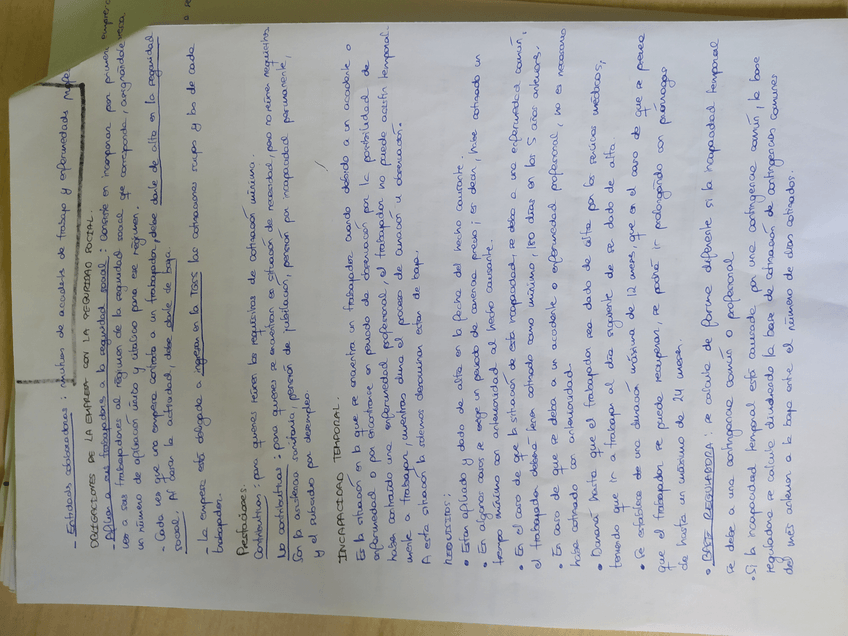 - Entidades colaboradoras: mutuas de accidente de trabajo y enfermedades profe
OBLIGACIONES DE LA EMPRESA CON LA SEGURIDAD SOCIAL.
- Afiliar a sus trabajadores a la seguridad social: Consiste en incorporar, por primera
vez a sus trabajadores al régimen de la seguridad social que corresponda, asignándole
un número de afiliación único y vitalicio para ese régimen.
- Cada vez que una empresa contrata a un trabajador, debe darle de alta en la seguridad
social. Al cesar la actividad, debe darle de baja.
- La empresa está obligada a ingresar en la TGSS las cotizaciones suyas y las de cada
trabajador.
Prestaciones.
Contributivas: para quienes reúnen los requisitos de cotización mínima.
No contributivas: para quienes se encuentran en situación de necesidad, pero no reúnen requisitos
Son la asistencia sanitaria, pensión de jubilación, pensión por incapacidad permanente,
y el subsidio por desempleo.
INCAPACIDAD TEMPORAL.
Es la situación en la que se encuentra un trabajador cuando debido a un accidente o
enfermedad o por encontrarse en periodo de observación por la posibilidad de
haber contraído una enfermedad profesional, el trabajador no puede asistir temporal
mente a trabajar, mientras dura el proceso de curación u observación.
A esta situación la solemos denominar estar de baja.
REQUISITOS:
• Estar afiliado y dado de alta en la fecha del hecho causante.
• En algunos casos se exige un periodo de carencia previo; es decir, haber cotizado un
tiempo mínimo con anterioridad al hecho causante.
• En el caso de que la situación de esta incapacidad, se deba a una enfermedad común,
el trabajador deberá haber cotizado como mínimo, 180 días en los 5 años anteriores.
• En caso de que se deba a un accidente o enfermedad profesional, no es necesario
haber cotizado con anterioridad.
• Durará hasta que el trabajador sea dado de alta por los servicios médicos,
teniendo que ir a trabajar al día siguiente de ser dado de alta.
• Se establece de una duración máxima de 12 meses que en el caso de que se prevea
que el trabajador se puede recuperar, se podrá ir prolongando con prórrogas
de hasta un máximo de 24 meses.
• BASE REGULADORA: se calcula de forma diferente si la incapacidad temporal
se debe a una contingencia común o profesional
• Si la incapacidad temporal está causada por una contingencia común, la base
reguladora se calcula dividiendo la base de cotización de contingencias comunes
del mes anterior a la baja entre el número de días cotizados.